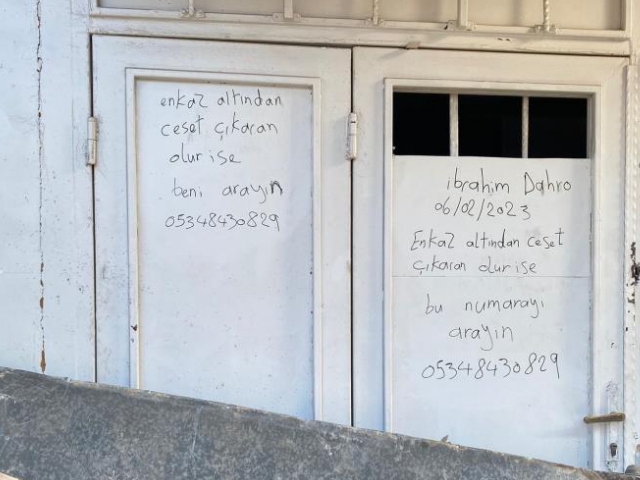 enkaz altından
ceset çıkaran
olur ise
beni arayın
05348430829
ibrahim Dahro
06/02/2023
Enkaz altından ceset
çıkaran olur ise
bu numarayı
arayın
05348430829